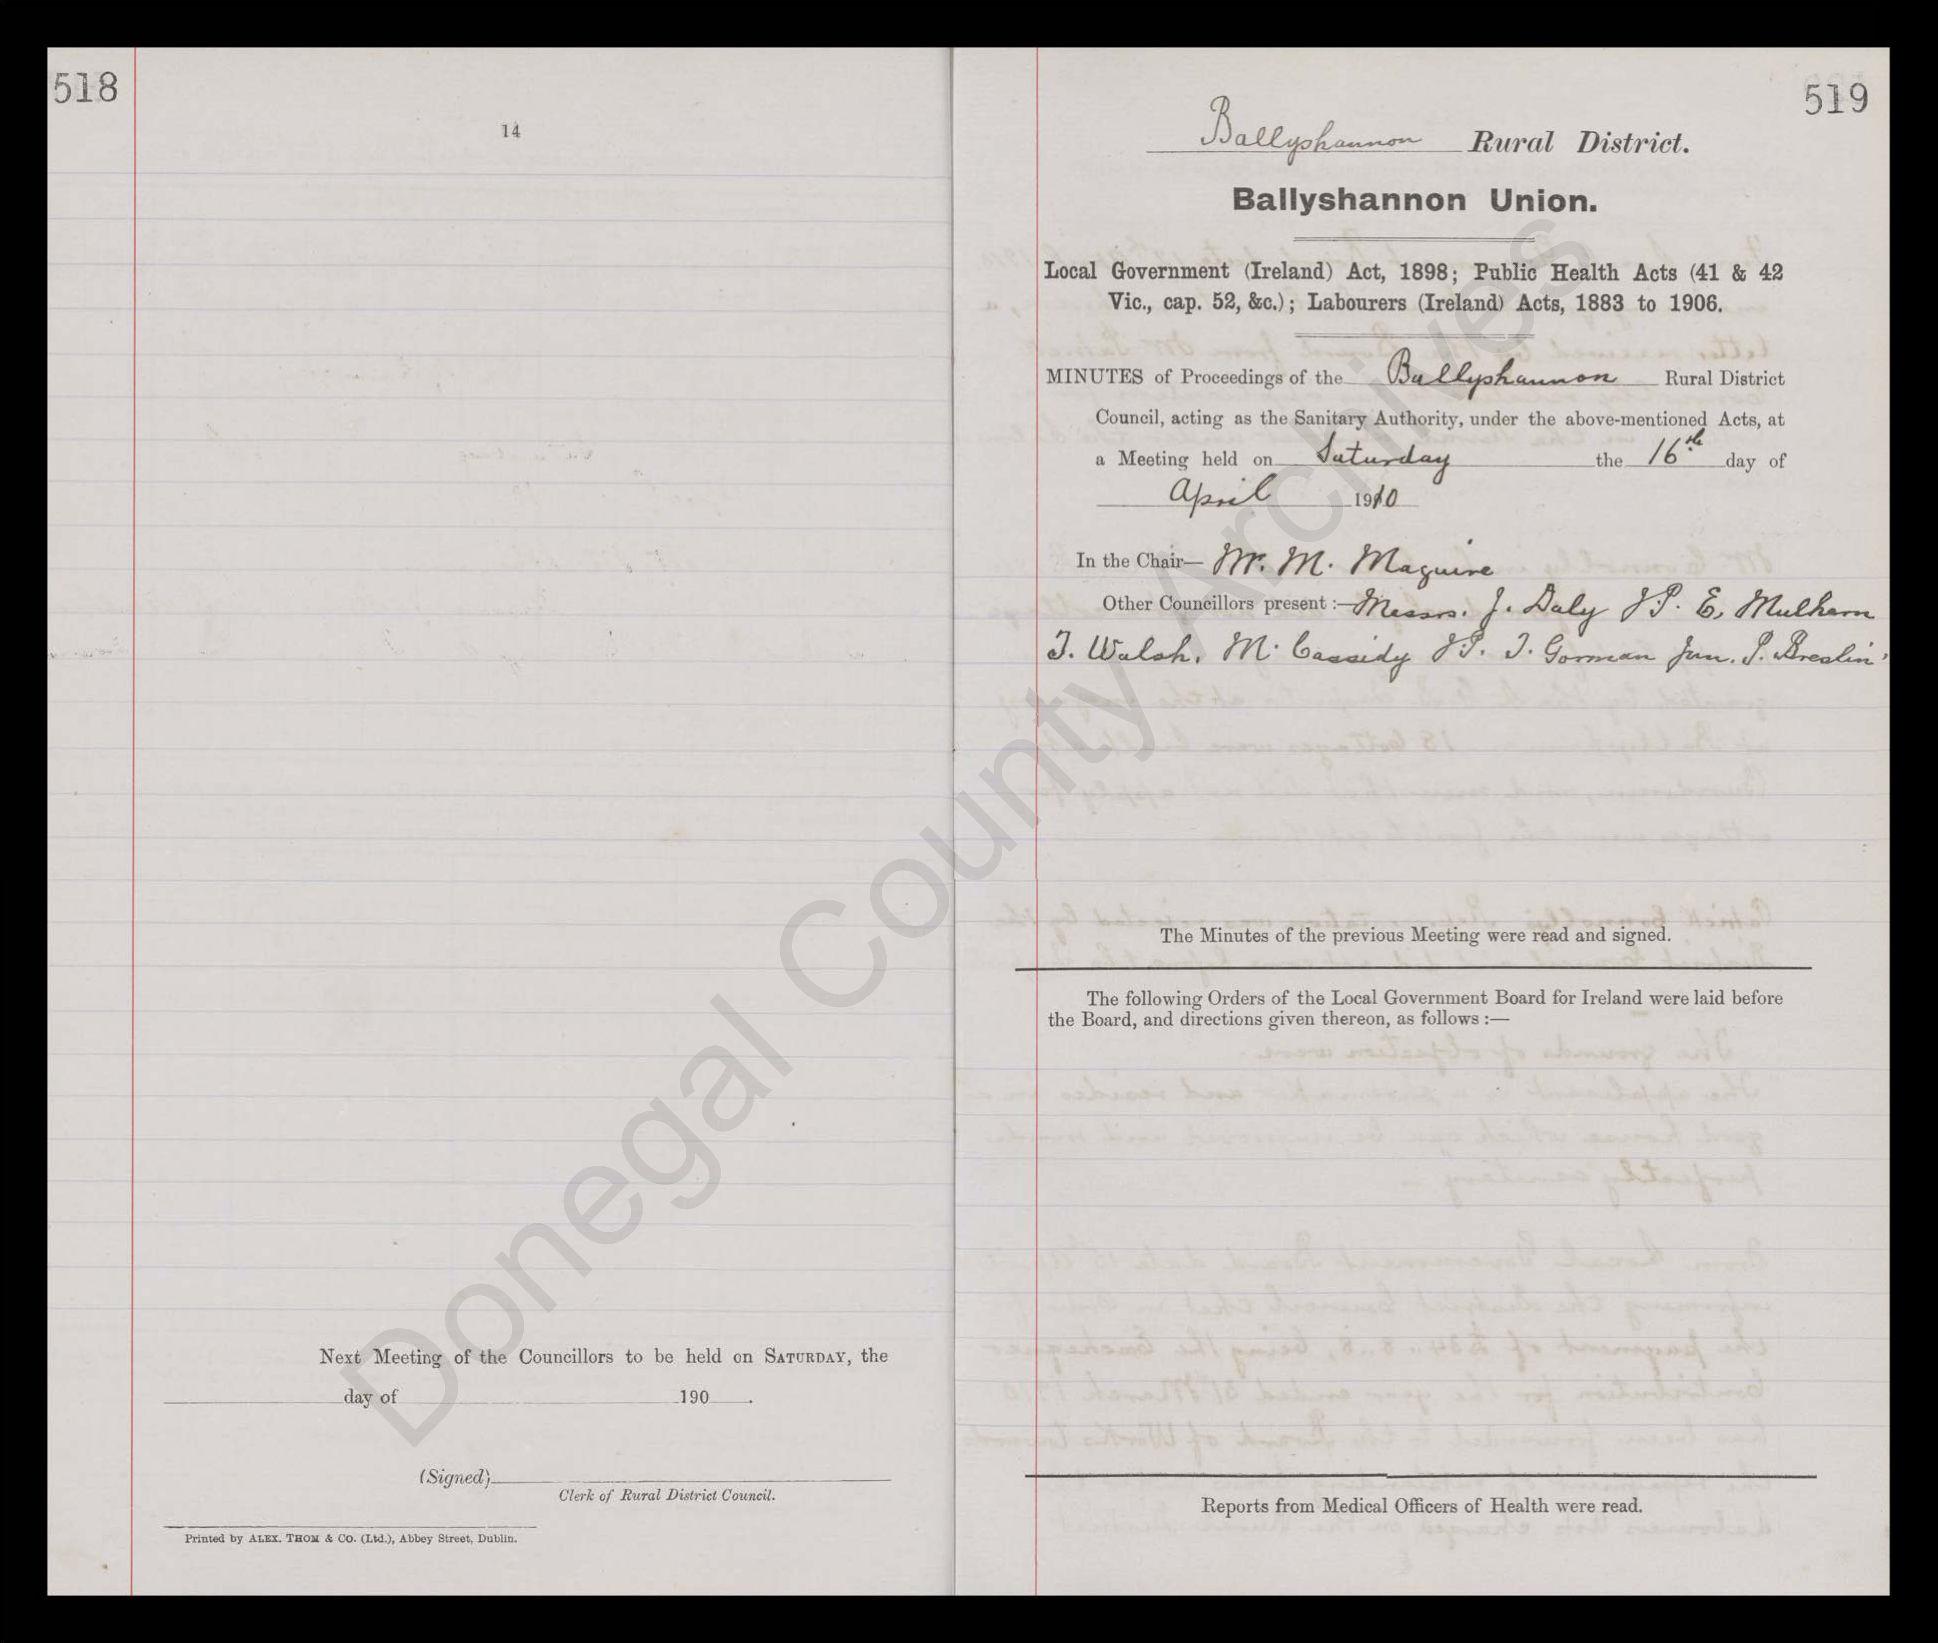 518
14
Next Meeting of the Councillors to be held on SATURDAY, the
day of 190 .
(Signed)
Clerk of Rural District Council.
Printed by ALEX. THOM & CO. (Ltd.), Abbey Street, Dublin.
519
Ballyshannon Rural District.
Ballyshannon Union.
Local Government (Ireland) Act, 1898; Public Health Acts (41 & 42
Vic., cap. 52, &c.); Labourers (Ireland) Acts, 1883 to 1906.
MINUTES of Proceedings of the Ballyshannon Rural District
Council, acting as the Sanitary Authority, under the above-mentioned Acts, at
a Meeting held on Saturday the 16th day of
April 1910
In the Chair— Mr. M. Maguire
Other Councillors present :— Messrs. J. Daly J.P. E. Mulhern
T. Walsh, M. Cassidy J.P. T. Gorman Jun. P. Breslin
The Minutes of the previous Meeting were read and signed.
The following Orders of the Local Government Board for Ireland were laid before
the Board, and directions given thereon, as follows :—
Reports from Medical Officers of Health were read.
Donegal County Archives